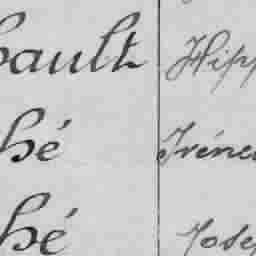 bault Hipp
hé Iréné
hé Jose